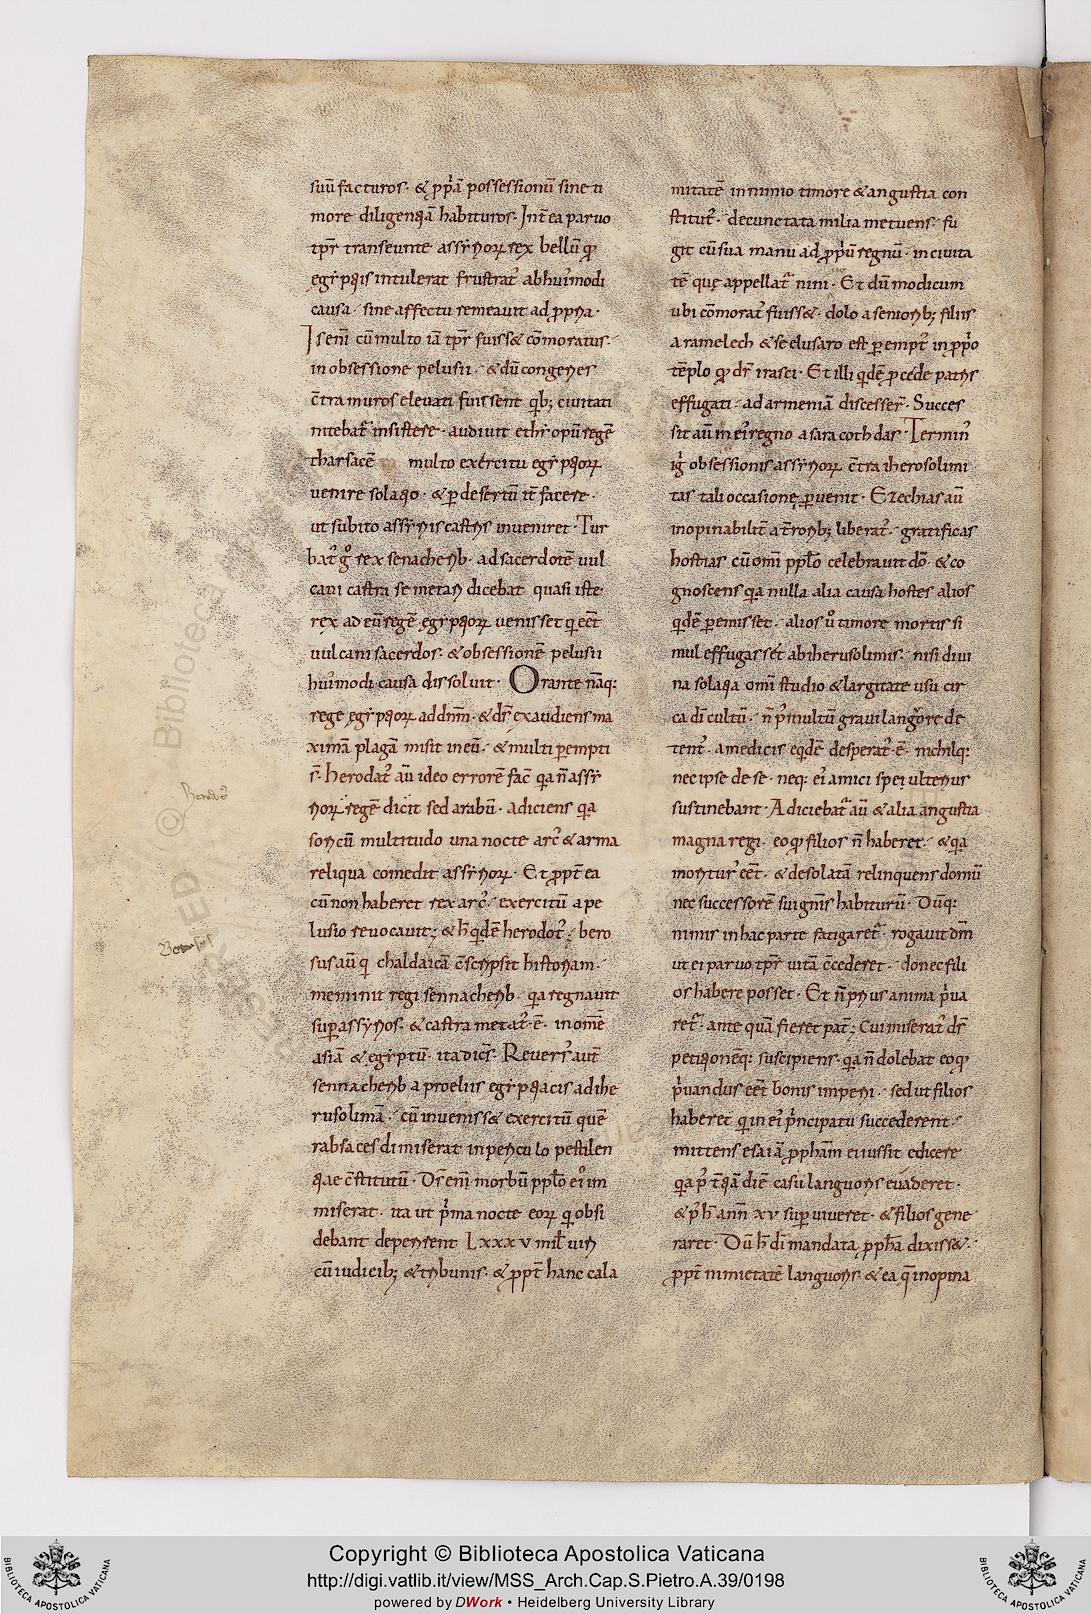 suū facturos· & ꝓpͥā possessionū sine ti
more diligentiā habituros· Int̄ea paruo
tp̄r transeunte· assyriorꝝ rex bellū qͦ
egyptiis intulerat frustratꝰ ab huiꝰmodi
causa· sine affectu remeauit ad ꝓpria·
Is enī cū multo iā tp̄r fuiss& cōmoratus·
in obsessione pelusii· & dū congeries
c̄tra muros eleuati fuissent qͥbꝫ ciuitati
nitebatꝰ insistere· audiuit ethyopū regē
tharsacē multo exercitu egyptiorꝝ
uenire solatio· & ꝑ desertū it̄ facere·
ut subito assyriis castris inueniret· Tur
batꝰ gͦ rex senacherib· ad sacerdotē uul
cani castra se metari dicebat quasi iste
rex ad eū regē egyptiorꝝ uenisset qͥ eēt
uulcani sacerdos· & obsessionē pelusii
huiꝰmodi causa dissoluit· Orante nāqꝫ
rege egyptiorꝝ ad dn̄m· & ds̄ exaudiens ma
ximā plagā misit in eū· & multi ꝑempti
s̄· herodatꝰ aū ideo errorē fac̄ qͥa n̄ assy
riorꝝ regē dicit sed arabū· adiciens qͥa
soricū multitudo una nocte arcꝰ & arma
reliqua comedit assyriorꝝ· Et ꝓpt̄ ea
cū non haberet rex arcꝰ· exercitū a pe
lusio reuocauit· & h̄ qͥdē herodotꝰ· bero
sus aū qͥ chaldaicā c̄scripsit historiam·
meminit regi sennacherib· qͥa regnauit
suꝑ assyrios· & castra metatꝰ ē· in om̄e
asiā & egyptū· ita dicēs· Reuersꝰ aut̄
sennacherib a proeliis egyptiacis ad ihe
rusolimā· cū inueniss& exercitū quē
rabsaces dimiserat in periculo pestilen
tiae c̄stitutū· Ds̄ enī morbū pplo eiꝰ im
miserat· ita ut pͥma nocte eorꝝ qͥ obsi
debant deperirent Lxxxv mil̄ uiri
cū iudicibꝫ & tribunis· & ꝓpt̄ hanc cala
mitatē in nimio timore & angustia con
stitutꝰ· de cunctata milia metuens· fu
git cū sua manu ad ꝓpͥū regnū· in ciuita
tē quę appellatꝰ nini· Et dū modicum
ubi cōmoratꝰ fuiss&· dolo a senioribꝫ filiis
aramelech & selusaro est ꝑemptꝰ in ꝓpͥo
tēplo qͦ dr̄ irasci· Et illi qͥdē ꝓ cede patris
effugati· ad armeniā discesser̄· Succes
sit aū in eiꝰ regno asaracoth das· Terminꝰ
iḡ obsessionis assyriorꝝ c̄tra iherosolimi
tas tali occasionę ꝑuenit· Ezechias aū
inopinabilit̄ a t̄roribꝫ liberatꝰ· gratificas
hostias cū omī pplo celebrauit dō· & co
gnoscens qͥa nulla alia causa hostes alios
qͥdē ꝑemisset· alios uͦ timore mortis si
mul effugasset ab iherusolimis· nisi diui
na solatia omī studio & largitate usu cir
ca dī cultū· n̄ pꝰ multū graui langore de
tentꝰ· a medicis eqͥdē desperatꝰ ē· nichilqꝫ
nec ipse de se· neqꝫ eiꝰ amici spei ulterius
sustinebant· Adiciebatꝰ aū & alia angustia
magna regi· eo qͦ filios n̄ haberet· & qͥa
moriturꝰ eēt· & desolatā relinquens domū
nec successorē sui gnīs habiturū· Dūqꝫ
nimis in hac parte fatigaretꝰ· rogauit dm̄
ut ei paruo tp̄r uitā c̄cederet· donec fili
os habere posset· Et n̄ prius anima pͥua
retꝰ· ante quā fieret pat̄· Cui miseratꝰ ds̄
petitionēqꝫ suscipiens· qͥa n̄ dolebat eo qͦ
pͥuandus eēt bonis imperii· sed ut filios
haberet qͥ in eiꝰ pͥncipatu succederent·
mittens esaiā ꝓpham ei iussit edicere
qͥa pꝰ t̄tiā diē casū languoris euaderet·
& pꝰ h̄ ann̄ xv suꝑuiueret· & filios gene
raret· Dū h̄ dī mandata ꝓpha dixiss&·
ꝓpt̄ nimietatē languoris· & ea q̄ inopina
Herodotꝰ
Berosus
Copyright © Biblioteca Apostolica Vaticana
http://digi.vatlib.it/view/MSS_Arch.Cap.S.Pietro.A.39/0198
powered by DWork • Heidelberg University Library